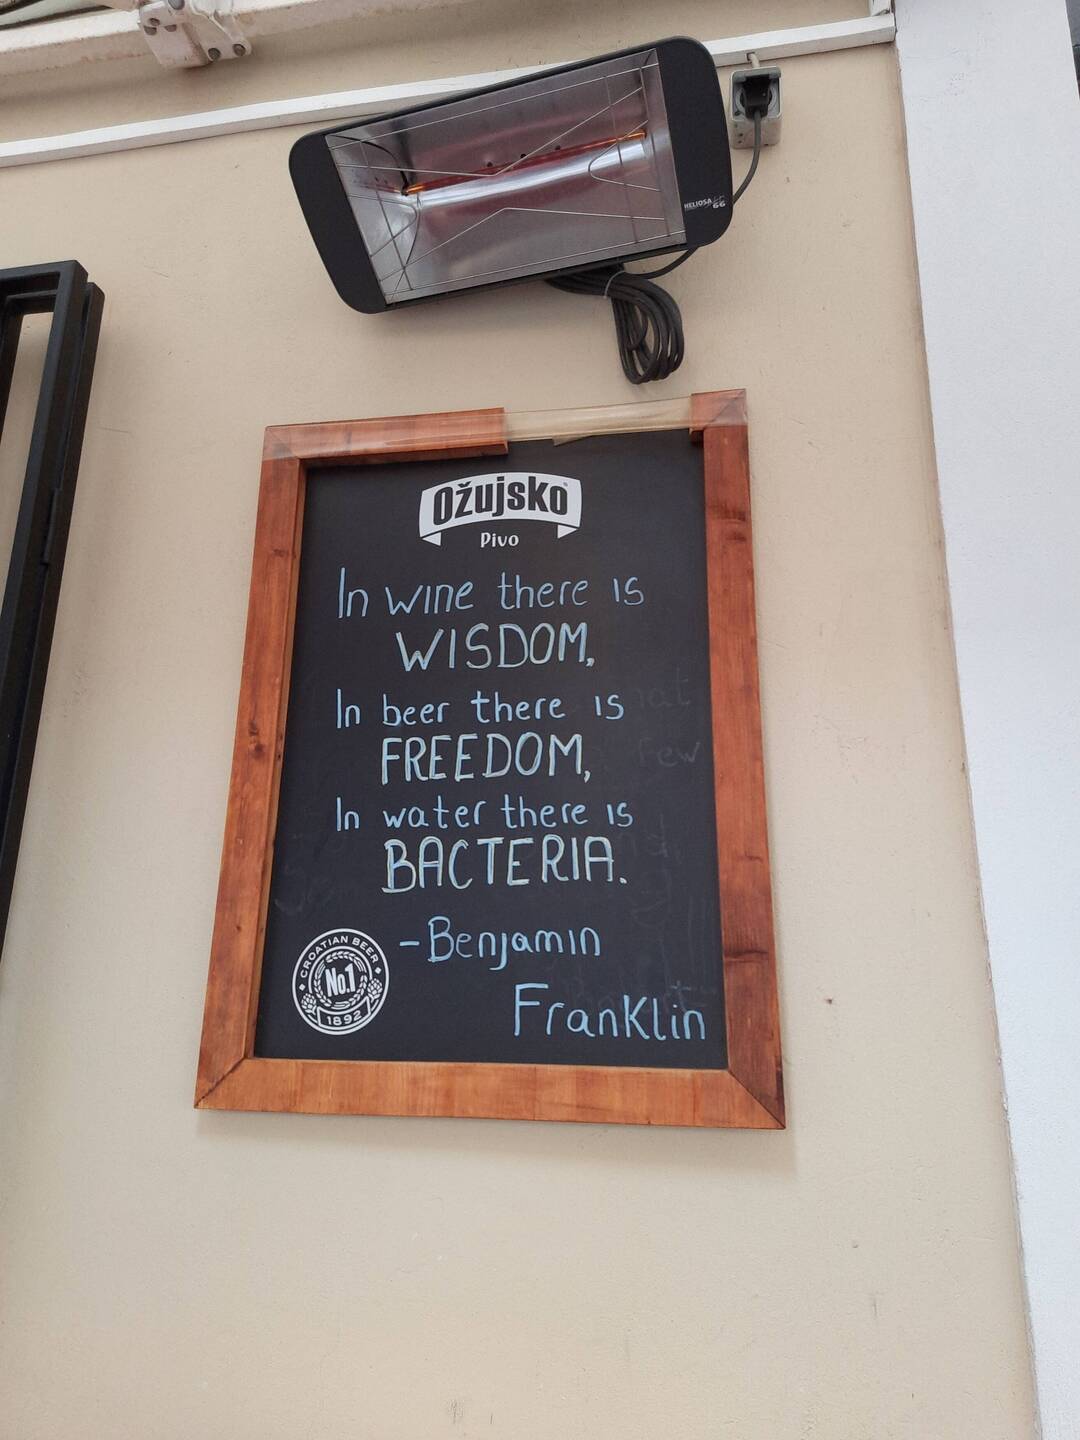 HELIOSA 66
Ožujsko
Pivo
In wine there is
WISDOM,
In beer there is
FREEDOM,
In water there is
BACTERIA.
-Benjamin
Franklin
CROATIAN BEER
No.1
1892